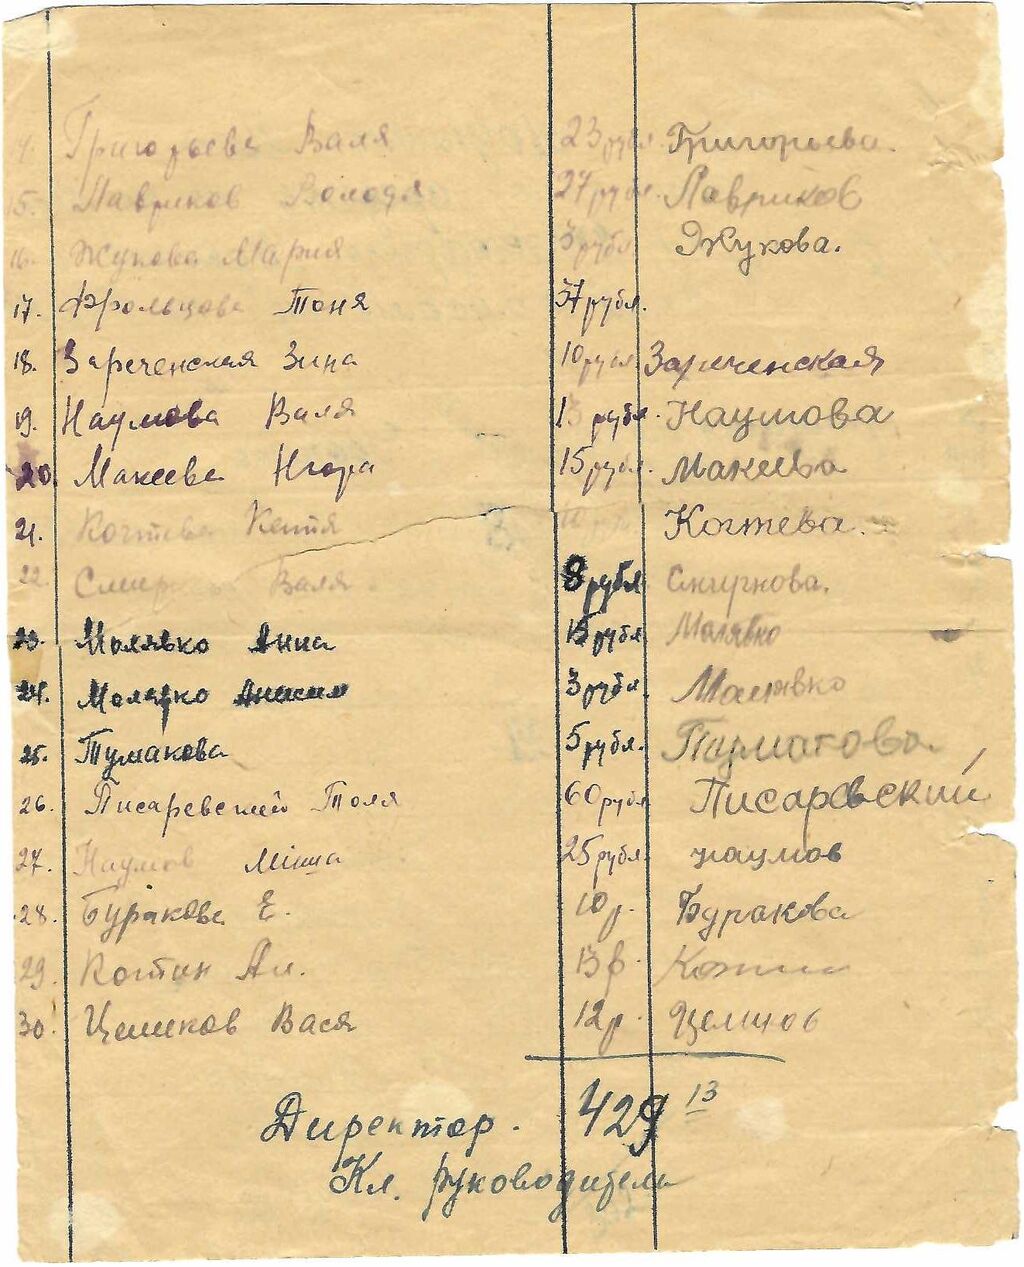 Григорьева Валя 23 рубл. Григорьева.
15. Лавриков Володя 27 рубл. Лавриков
16. Жукова Мария 5 рубл. Жукова.
17. Фрольцова Тоня 37 рубл.
18. Зареченская Зина 10 рубл Зареченская
19. Наумова Валя 13 рубл. Наумова
20. Макеева 15 рубл. Макеева
21. Когтева Катя 10 Когтева.
22. Валя 8 рубл Смирнова.
23. Молявко Анна 15 рубл Молявко
24. Молявко 3 рубл. Малявко
25. Тумакова 5 рубл.
26. Писаревский Толя 60 рубл Писаревский
27. Наумов Миша 25 рубл. наумов
28. Буракова Е. 10 р. Буракова
29. Костин Ал. 13 р.
30. Вася 12 р.
429 13
Директор.
Кл. руководитель